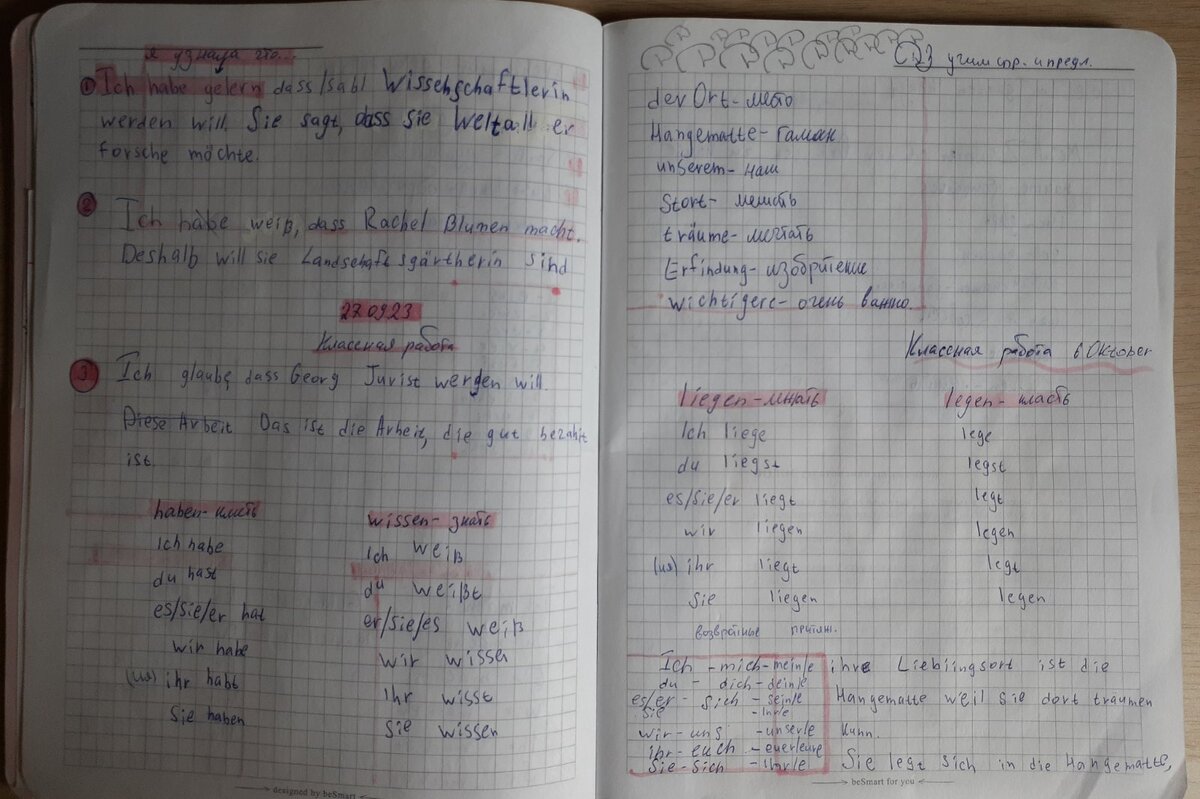 я узнала что...
① Ich habe gelern dass Isabl Wissenschaftlerin
werden will. Sie sagt, dass sie Weltall er
forsche möchte.
② Ich habe weiß, dass Rachel Blumen macht.
Deshalb will sie Landschaftsgärtherin sind
27.09.23
Классная работа
③ Ich glaube, dass Georg Jurist werden will.
Diese Arbeit Das ist die Arbeit, die gut bezahlt
ist.
haben-иметь wissen- знать
Ich habe Ich weiß
du hast du weißt
es/sie/er hat er/sie/es weiß
wir habe wir wissen
ihr habt Ihr wisst
Sie haben Sie wissen
designed by beSmart
Дз учим спр. и предл.
der Ort- место
Hangematte- гамак
unserem- наш
Stort- мешать
träume- мечтать
Erfindung- изобритение
wichtigere- очень важно.
Классная работа 6 Oktober
liegen-лежать legen- класть
Ich liege lege
du liegst legst
es/sie/er liegt legt
wir liegen legen
ihr liegt legt
Sie liegen legen
возвратные притяж.
Ich -mich-mein/e ihre Lieblingsort ist die
du - dich-dein/e
es/er- sich - sein/e Hangematte weil sie dort träumen
sie - Ihr/e
wir-uns -unser/e kann.
ihr-euch - euer/eure
Sie-sich - Ihr/e Sie legt sich in die Hangematte,
beSmart for you